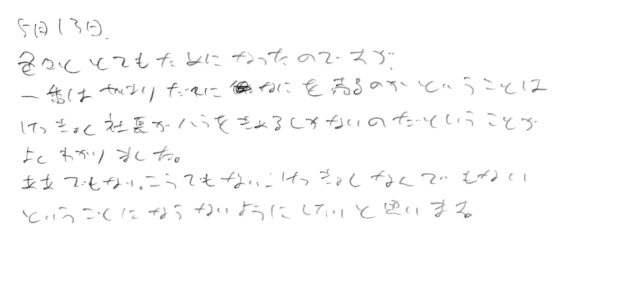 5月13日
色々ととてもためになったのですが、
一番はやはりだれになにを売るのかということは
けっきょく社長がハラをきめるしかないのだということが
よくわかりました。
ああでもない、こうでもない、けっきょくなんでもない
ということにならないようにしたいと思いまする